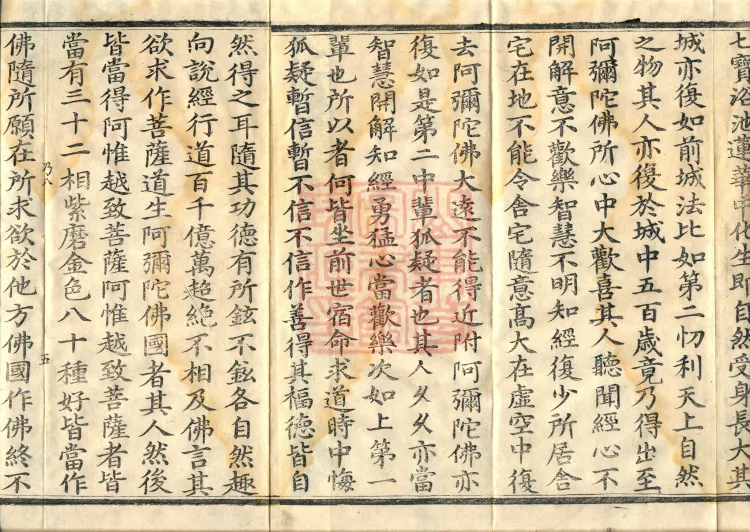 七寶浴池蓮華中化生即自然受身長大其
城亦復如前城法比如第二忉利天上自然
之物其人亦復於城中五百歲竟乃得出至
阿彌陀佛所心中大歡喜其人聽聞經心不
開解意不歡樂智慧不明知經復少所居舍
宅在地不能令舍宅隨意高大在虛空中復
去阿彌陀佛大遠不能得近附阿彌陀佛亦
復如是第二中輩狐疑者也其人久久亦當
智慧開解知經勇猛心當歡樂次如上第一
輩也所以者何皆坐前世宿命求道時中悔
狐疑暫信暫不信不信作善得其福德皆自
然得之耳隨其功德有所鉉不鉉各自然趣
向說經行道百千億萬超絕不相及佛言其
欲求作菩薩道生阿彌陀佛國者其人然後
皆當得阿惟越致菩薩阿惟越致菩薩者皆
當有三十二相紫磨金色八十種好皆當作
佛隨所願在所求欲於他方佛國作佛終不
乃八
五